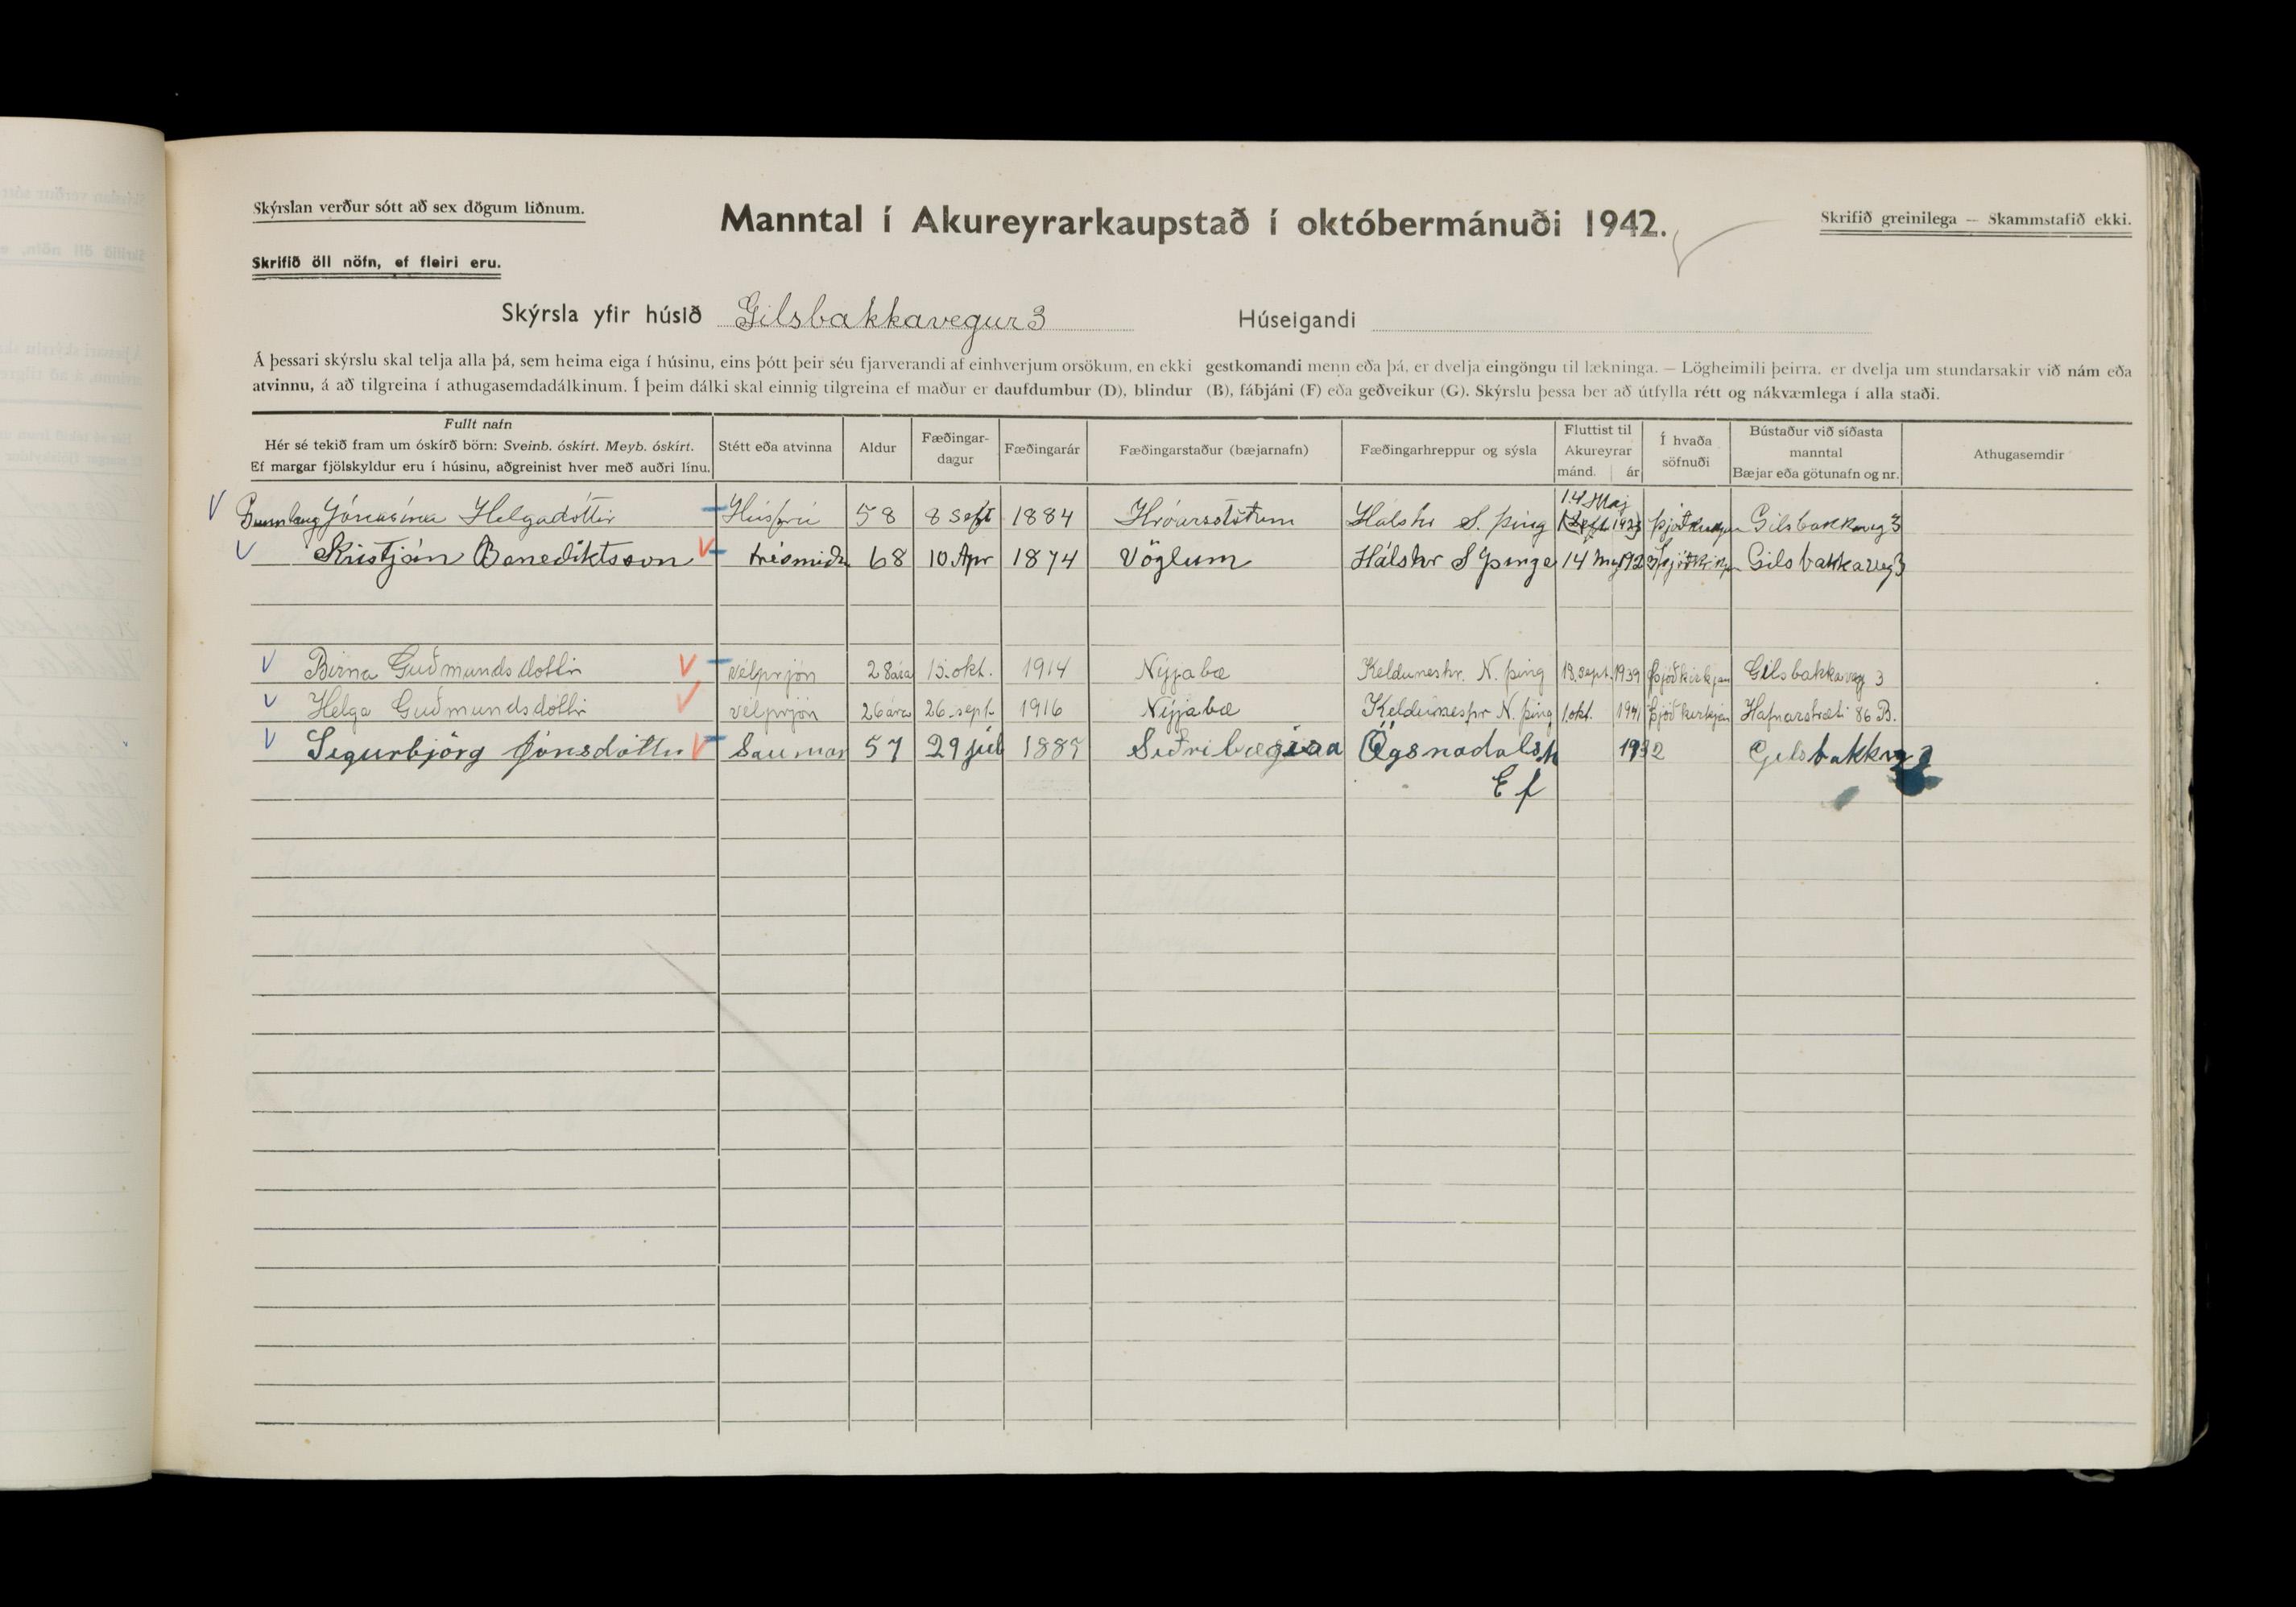 Skýrslan verður sótt að sex dögum liðnum.
Manntal í Akureyrarkaupstað í októbermánuði 1942.
Skrifið greinilega — Skammstafið ekki.
Skrifið öll nöfn, ef fleiri eru.
Skýrsla yfir húsið Gilsbakkavegur 3 Húseigandi
Á þessari skýrslu skal telja alla þá, sem heima eiga í húsinu, eins þótt þeir séu fjarverandi af einhverjum orsökum, en ekki gestkomandi menn eða þá, er dvelja eingöngu til lækninga. — Lögheimili þeirra, er dvelja um stundarsakir við nám eða
atvinnu, á að tilgreina í athugasemdadálkinum. Í þeim dálki skal einnig tilgreina ef maður er daufdumbur (D), blindur (B), fábjáni (F) eða geðveikur (G). Skýrslu þessa ber að útfylla rétt og nákvæmlega í alla staði.
Fullt nafn
Hér sé tekið fram um óskírð börn: Sveinb. óskírt. Meyb. óskírt.
Ef margar fjölskyldur eru í húsinu, aðgreinist hver með auðri línu.
Stétt eða atvinna
Aldur
Fæðingar-
dagur
Fæðingarár
Fæðingarstaður (bæjarnafn)
Fæðingarhreppur og sýsla
Fluttist til
Akureyrar
mánd. ár
Í hvaða
söfnuði
Bústaður við síðasta
manntal
Bæjar eða götunafn og nr.
Athugasemdir
14 Maj
V Gunnlaug Jónasína Helgadóttir Húsfrú 58 8 sept 1884 Hróarsstöðum Hálshr S. þing 1923 þjóðkirkjan Gilsbakkaveg 3
V Kristján Benediktsson V trésmiðr 68 10 Apr 1874 Vöglum Hálshr S þinge 14 My 1923 þjóðkirkjan Gilsbakkaveg 3
V Birna Guðmundsdottir V vélprjón 28 ára 15. okt. 1914 Nýjabæ Kelduneshr. N. þing 18. sept. 1939 þjóðkirkjan Gilsbakkaveg 3
V Helga Guðmundsdóttir V vélprjón 26 ára 26. sept. 1916 Nýjabæ Kelduneshr N. þing 1. okt. 1941 þjóðkirkjan Hafnarstræti 86 B.
V Sigurbjörg Jónsdóttir V Saumar 57 29 júlí 1885 Öxnadalsh 1932 Gilsbakkav 3
Ef